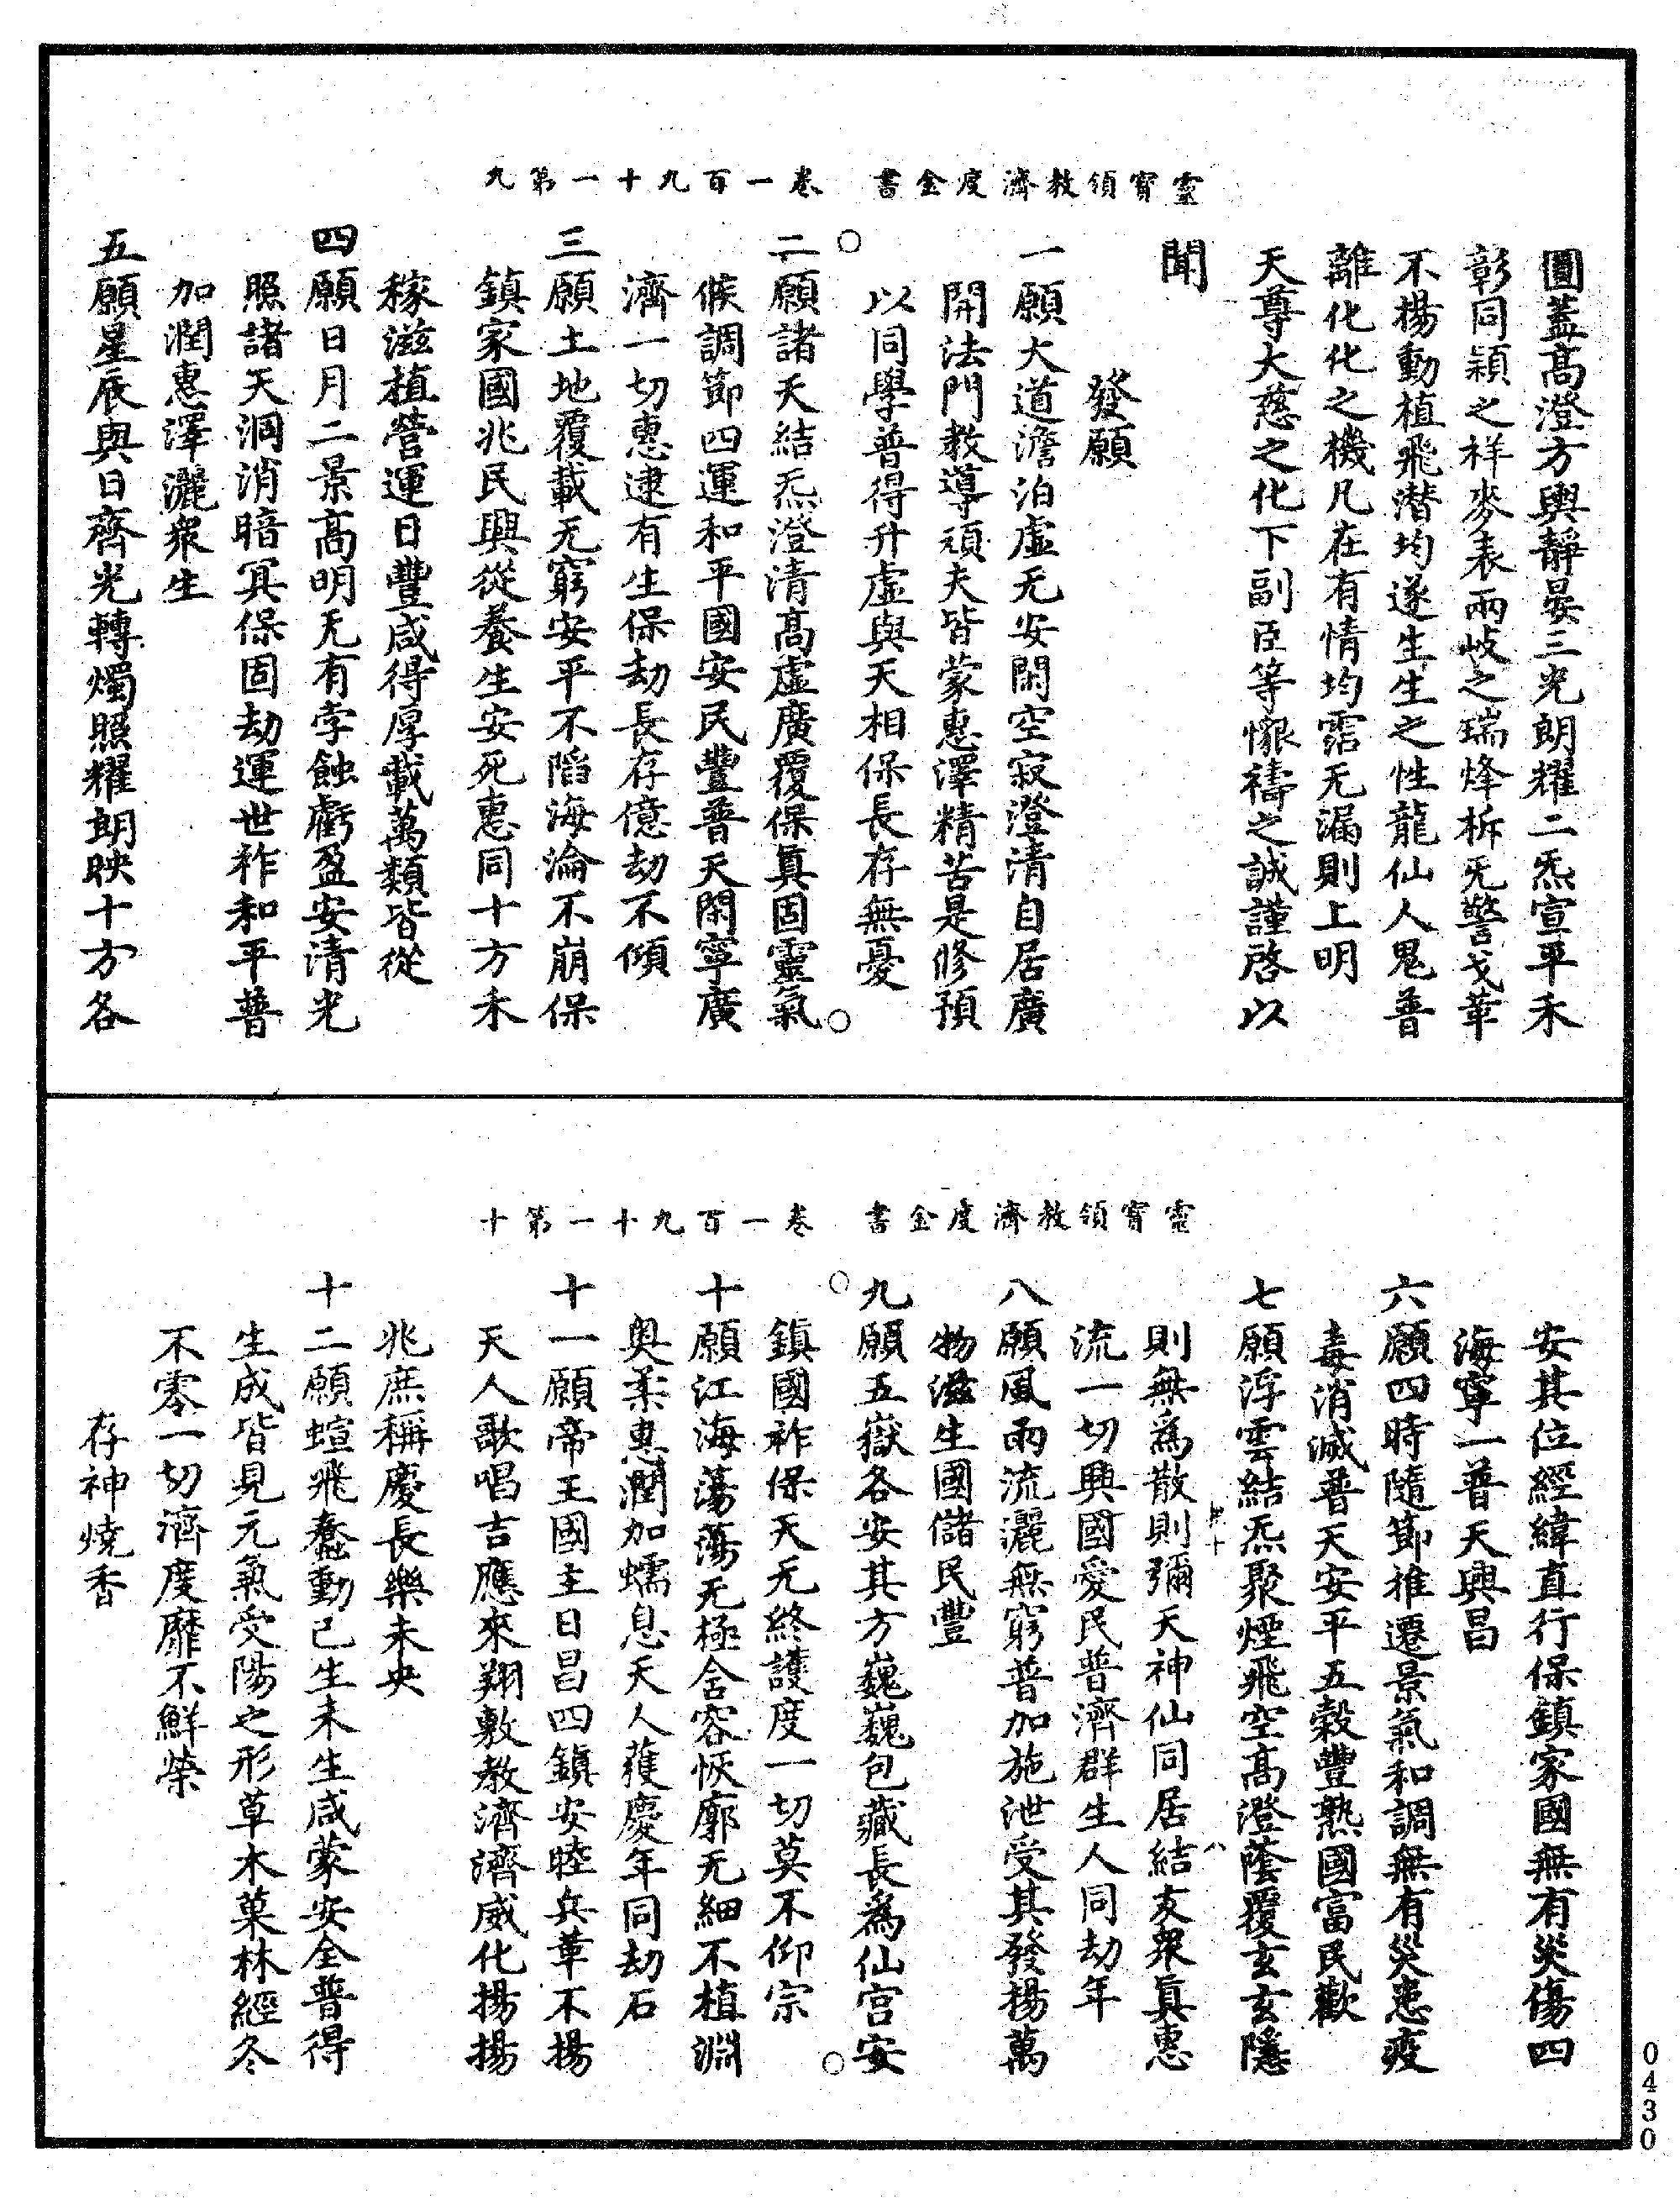 靈寶領教濟度金書　卷一百九十一第九
圓蓋高澄方輿靜晏三光朗耀二炁宣平禾
彰同穎之祥麥表兩岐之瑞烽柝旡警戈革
不揚動植飛潜均遂生生之性龍仙人鬼普
離化化之機凡在有情均霑无漏則上明
天尊大慈之化下副臣等懷禱之誠謹啓以
聞
發願
一願大道澹泊虛无安閑空寂澄清自居廣
開法門教導頑夫皆蒙惠澤精苦是修預
以同學普得升虛與天相保長存無憂
二願諸天結炁澄清高虛廣覆保真固靈氣
候調節四運和平國安民豐普天閑寧廣
濟一切惠逮有生保劫長存億劫不傾
三願土地覆載无窮安平不䧟海淪不崩保
鎮家國兆民興從養生安死惠同十方禾
稼滋植營運日豐咸得厚載萬類皆從
四願日月二景高明无有孛蝕虧盈安清光
照諸天洞消暗冥保固劫運世祚和平普
加潤惠澤灑衆生
五願星辰與日齊光轉燭照耀朗映十方各
靈寶領教濟度金書　卷一百九十一第十
安其位經緯直行保鎮家國無有災傷四
海寧一普天興昌
六願四時隨節推遷景氣和調無有災患疫
毒消滅普天安平五穀豐熟國富民歡
七願浮雲結炁聚煙飛空高澄蔭覆玄玄隱
則無爲散則彌天神仙同居結友衆真惠
流一切興國愛民普濟群生人同劫年
八願風雨流灑無窮普加施泄受其發揚萬
物滋生國儲民豐
九願五嶽各安其方巍巍包藏長爲仙宮安
鎮國祚保天无終護度一切莫不仰宗
十願江海蕩蕩无極含容恢廓无細不植淵
奥柔惠潤加蠕息天人獲慶年同劫石
十一願帝王國主日昌四鎮安睦兵革不揚
天人歌唱吉應來翔敷教濟濟威化揚揚
兆庶稱慶長樂未央
十二願蝖飛蠢動已生未生咸蒙安全普得
生成皆見元氣受陽之形草木菓林經冬
不零一切濟度靡不鮮榮
存神燒香
0430